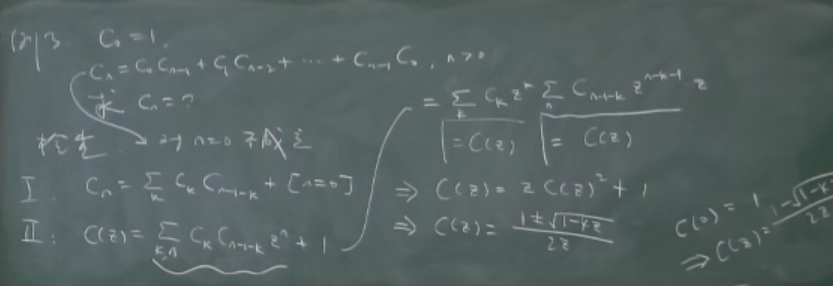 例3. C₀ = 1,
Cₙ = C₀Cₙ₋₁ + C₁Cₙ₋₂ + ⋯ + Cₙ₋₁C₀, n>0
求 Cₙ = ?
对 n=0 不成立
I. Cₙ = ∑ₖ CₖCₙ₋₁₋ₖ + [n=0]
II: C(z) = ∑ₖ,ₙ CₖCₙ₋₁₋ₖ zⁿ + 1
= ∑ₖ Cₖ zᵏ ∑ₙ Cₙ₋₁₋ₖ zⁿ⁻ᵏ⁻¹ z
= C(z) = C(z)
⇒ C(z) = z C(z)² + 1
⇒ C(z) = (1±√(1-4z))/(2z)
C(0) = 1
⇒ C(z) = (1-√(1-4z))/(2z)